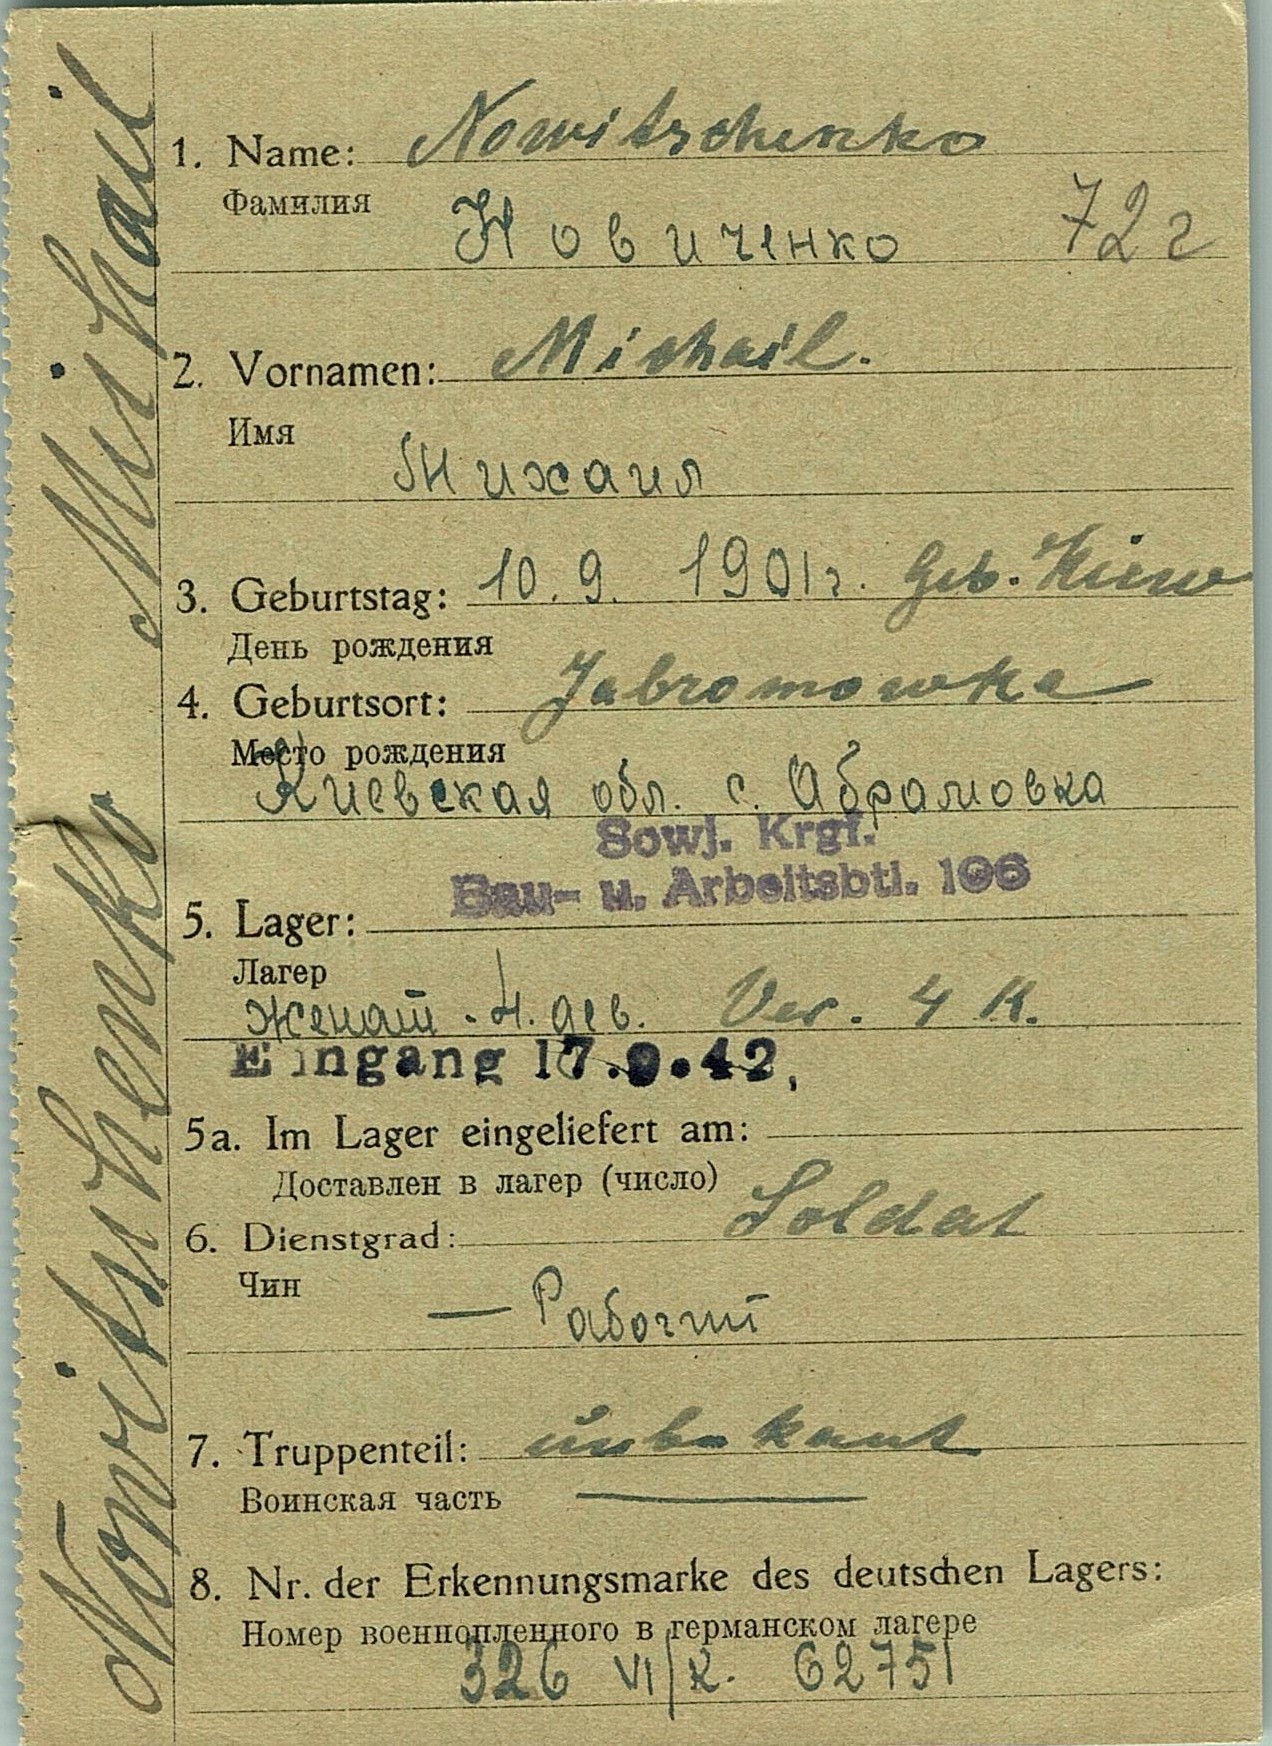 Nowitschenko Mihail
1. Name: Nowitschenko
Фамилия
Новиченко 72 г
2. Vornamen: Michail.
Имя
Михаил
3. Geburtstag: 10. 9. 1901 г. Geb. Kiew
День рождения
4. Geburtsort: Jabromowka
Место рождения
Киевская обл. с. Абрамовка
Sowj. Krgf.
Bau- u. Arbeitsbtl. 106
5. Lager:
Лагер
женат - 4. дев. Ver. 4 K.
Eingang 17.9.42,
5a. Im Lager eingeliefert am:
Доставлен в лагер (число)
6. Dienstgrad: Soldat
Чин
— Рабочий
7. Truppenteil: unbekant
Воинская часть
8. Nr. der Erkennungsmarke des deutschen Lagers:
Номер военнопленного в германском лагере
326 VI/K. 62751